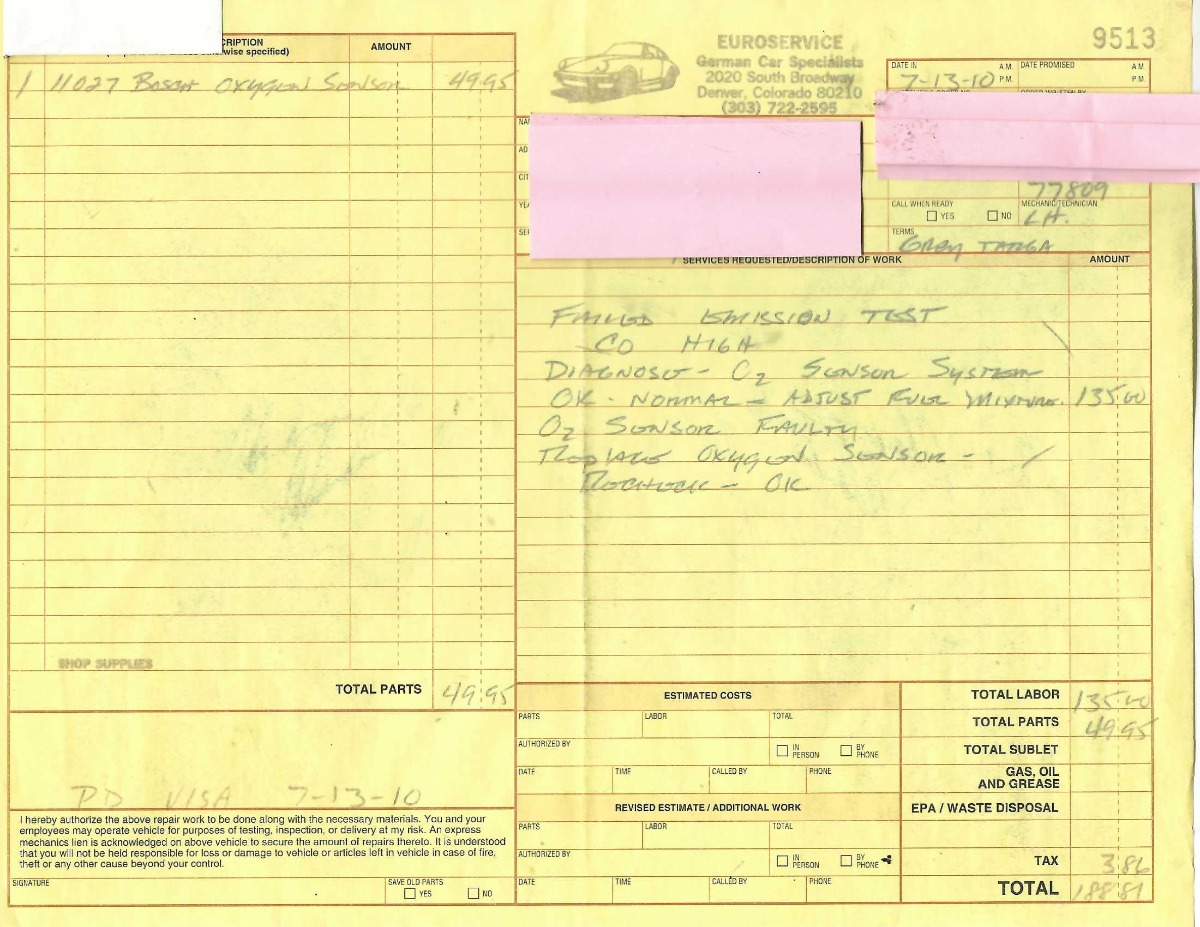 CRIPTION
wise specified)
AMOUNT
1 11027 Bosch OXYGEN SENSOR 49.95
SHOP SUPPLIES
TOTAL PARTS 49.95
PD VISA 7-13-10
I hereby authorize the above repair work to be done along with the necessary materials. You and your
employees may operate vehicle for purposes of testing, inspection, or delivery at my risk. An express
mechanics lien is acknowledged on above vehicle to secure the amount of repairs thereto. It is understood
that you will not be held responsible for loss or damage to vehicle or articles left in vehicle in case of fire,
theft or any other cause beyond your control.
SIGNATURE
SAVE OLD PARTS
YES NO
EUROSERVICE
German Car Specialists
2020 South Broadway
Denver, Colorado 80210
(303) 722-2595
9513
DATE IN A.M. DATE PROMISED A.M.
7-13-10 P.M. P.M.
77809
CALL WHEN READY MECHANIC/TECHNICIAN
YES NO LH.
TERMS
GREY TARGA
SERVICES REQUESTED/DESCRIPTION OF WORK AMOUNT
FAILED EMISSION TEST
CO HIGH
DIAGNOSE - O2 SENSOR SYSTEM
OK - NORMAL - ADJUST FUEL MIXTURE. 135.00
O2 SENSOR FAULTY
REPLACE OXYGEN SENSOR -
RECHECK - OK
ESTIMATED COSTS
PARTS LABOR TOTAL
AUTHORIZED BY IN PERSON BY PHONE
DATE TIME CALLED BY PHONE
REVISED ESTIMATE / ADDITIONAL WORK
PARTS LABOR TOTAL
AUTHORIZED BY IN PERSON BY PHONE
DATE TIME CALLED BY PHONE
TOTAL LABOR 135.00
TOTAL PARTS 49.95
TOTAL SUBLET
GAS, OIL
AND GREASE
EPA / WASTE DISPOSAL
TAX 3.86
TOTAL 188.81